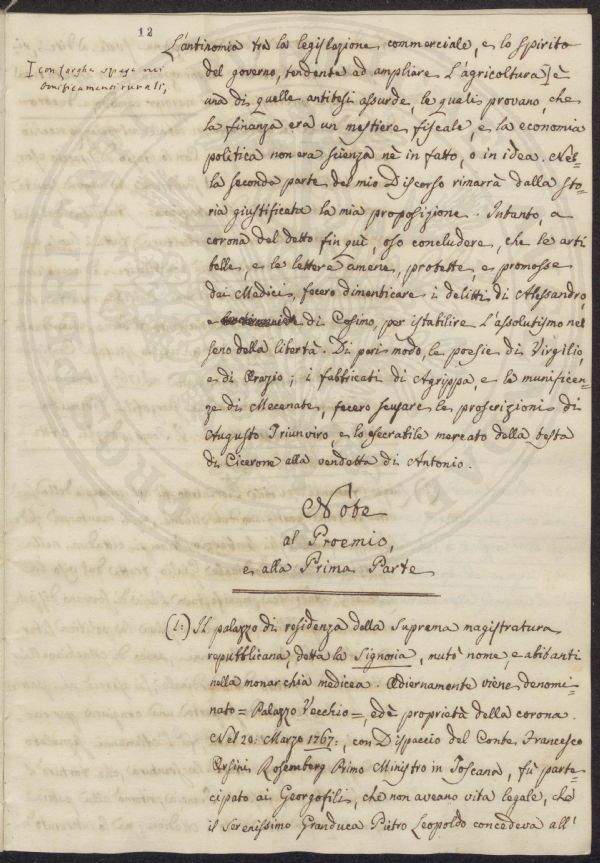 12
L'antinomia tra la legislazione commerciale, e lo spirito
I con larghe spese nei
bonificamenti rurali,
del governo, tendente ad ampliare l'agricoltura I è
una di quelle antitesi assurde, le quali provano, che
la finanza era un mestiere fiscale, e la economia
politica non era scienza nè in fatto, o in idea. Nel-
la seconda parte del mio Discorso rimarrà dalla sto-
ria giustificata la mia proposizione. Intanto, a
corona del detto fin quì, oso concludere, che le arti
belle, e le lettere amene, protette, e promosse
dai Medici, fecero dimenticare i delitti di Alessandro,
e di Cosimo, per istabilire l'assolutismo nel
seno della libertà. Di pari modo, le poesie di Virgilio,
e di Orazio; i fabbricati di Agrippa, e la munificen-
ze di Mecenate, fecero scusare le proscrizioni di
Augusto Triunviro, e lo esecrabile mercato della testa
di Cicerone alla vendetta di Antonio.
Note
al Proemio,
e alla Prima Parte
(1.) Il palazzo di residenza della Suprema magistratura
repubblicana, detta la Signoria, mutò nome, e abitanti
nella monarchia medicea. Odiernamente viene denomi-
nato = Palazzo Vecchio =, ed è proprietà della corona.
Nel 20: Marzo 1767:, con Dispaccio del Conte Francesco
Orsini Rosemberg Primo Ministro in Toscana, fù parte-
cipato ai Georgofili, che non aveano vita legale, che
il Serenissimo Granduca Pietro Leopoldo concedeva all'